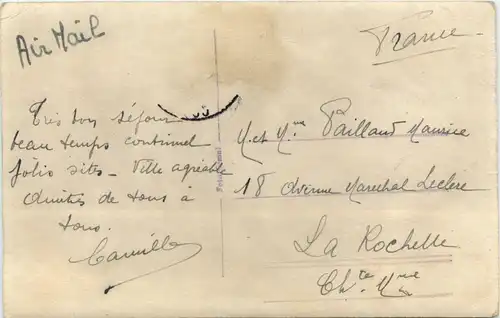 Air Mail
France
Très bon séjour
beau temps continuel
jolis sites - Ville agréable
Amitiés de tous à
tous.
Camille
M. et Mme Paillaud Maurice
18 Avenue Marechal Leclerc
La Rochelle
Chte Mme